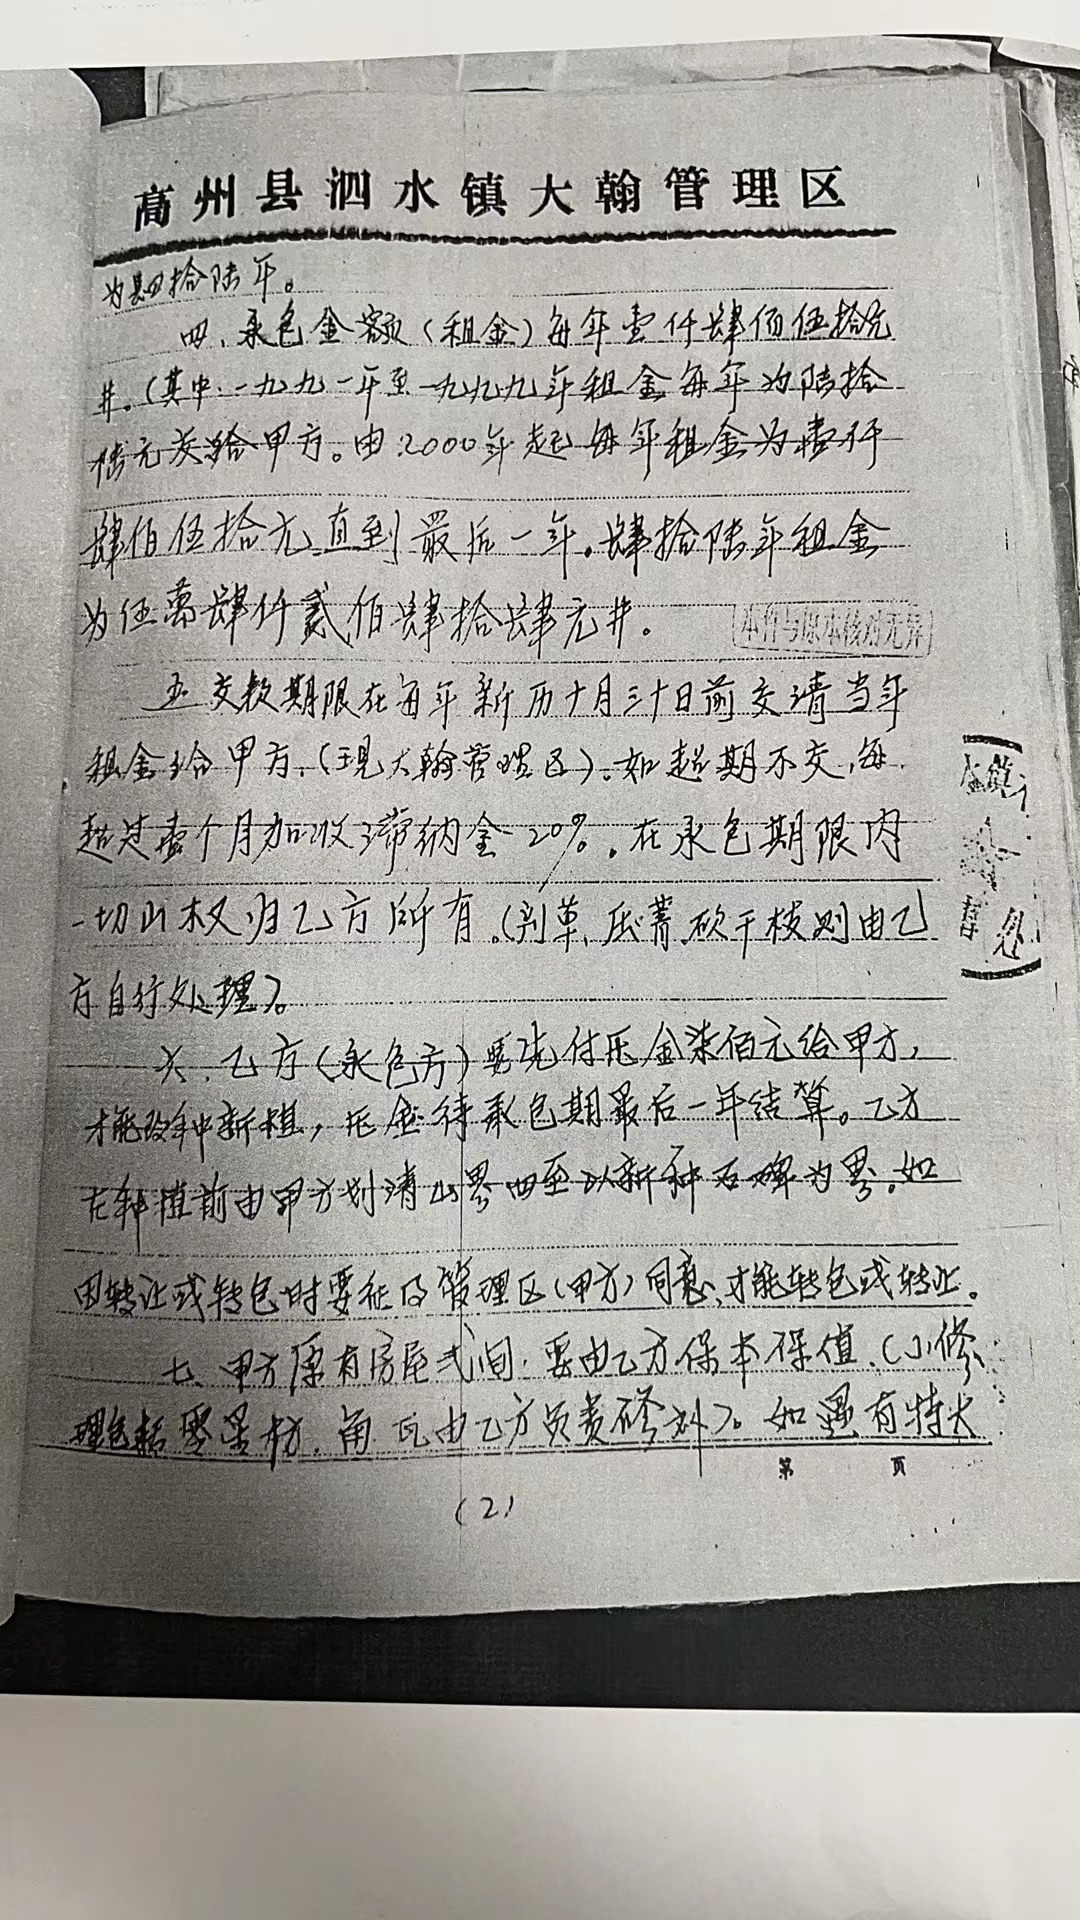 高州县泗水镇大翰管理区
为 肆拾陆年。
四、承包金额（租金）每年壹仟肆佰伍拾元
井。（其中：一九九一年至一九九九年租金每年为陆拾
陆元交给甲方。由2000年起每年租金为壹仟
肆佰伍拾元直到最后一年。肆拾陆年租金
为伍萬肆仟贰佰肆拾肆元井。
本件与原本核对无异
五、交款期限在每年新历十月三十日前交清当年
租金给甲方、（现大翰管理区）。如超期不交，每
超过壹个月加收滞纳金20%。在承包期限内
一切山权归乙方所有。（割草、 砍干枝则由乙
方自行处理）。
六、乙方（承包方）要先付压金柒佰元给甲方，
才能改种新植，压金待承包期最后一年结算。乙方
在种植前由甲方划清山界四至以新种石碑为界。如
因转让或转包时要征得管理区（甲方）同意、才能转包或转让。
七、甲方原有房屋弍间，要由乙方保本保值、（小修
理包括零星 、角瓦由乙方负责修补）。如遇有特大
第 页
（2）